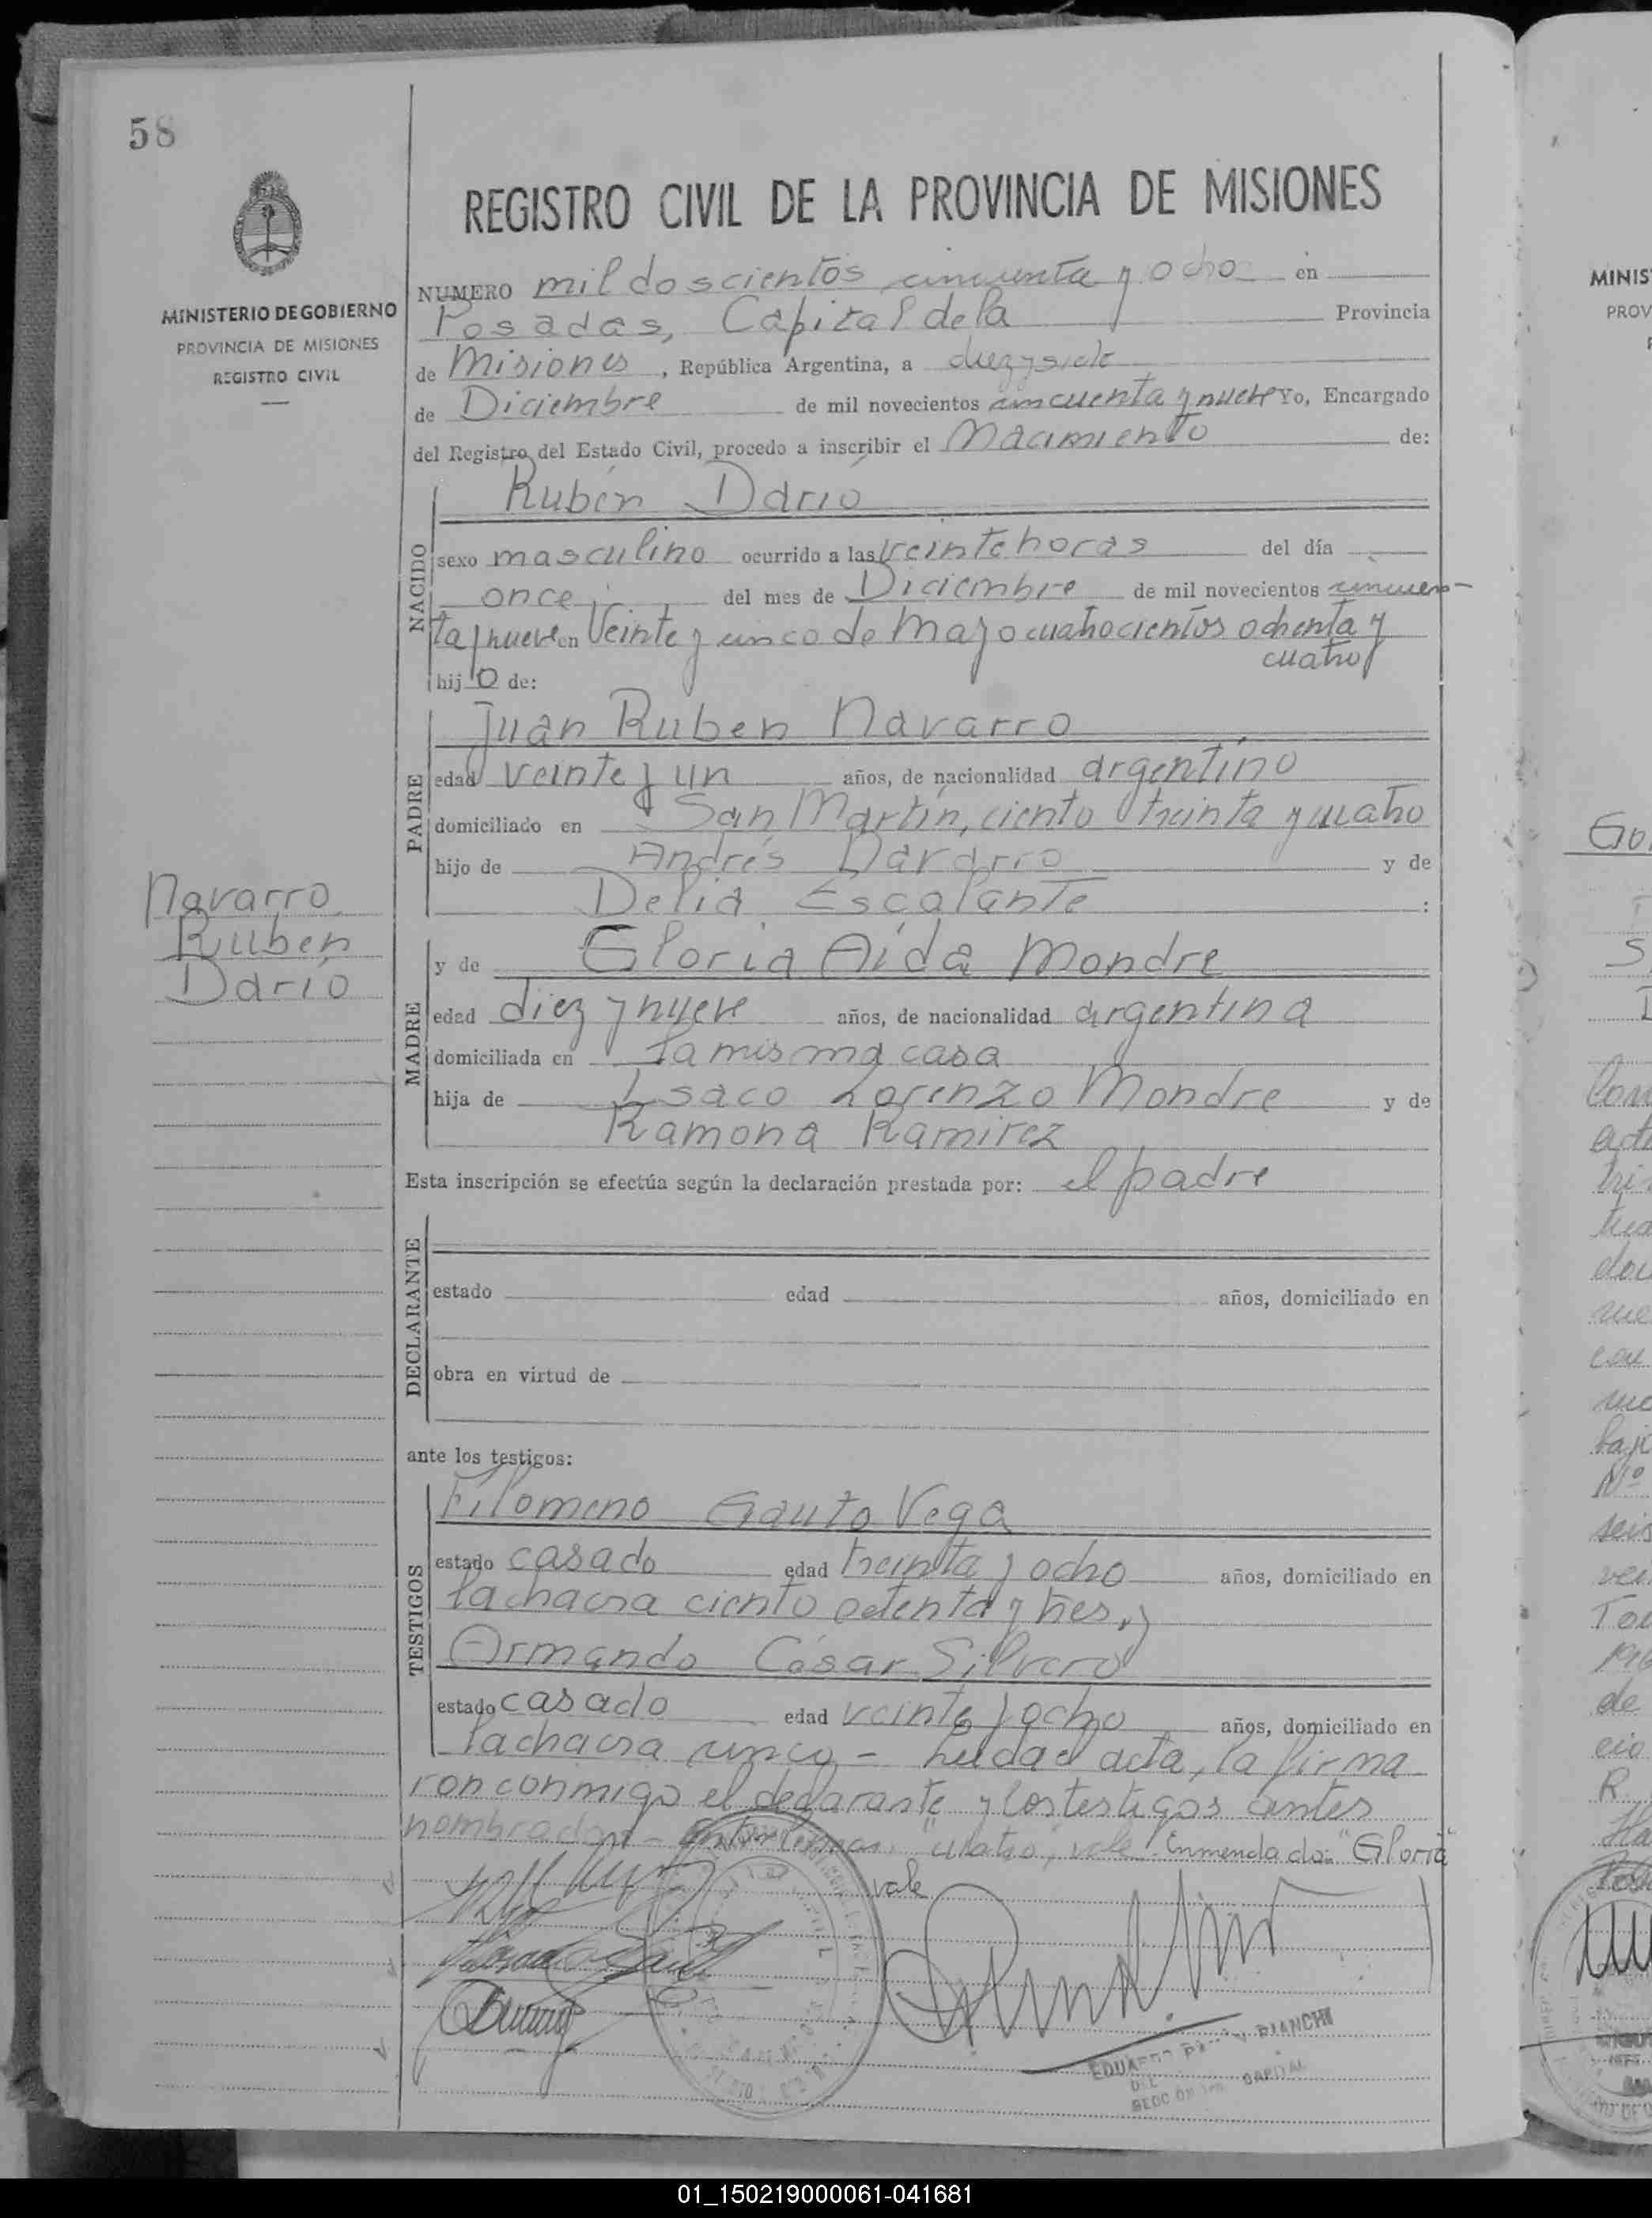 58
REGISTRO CIVIL DE LA PROVINCIA DE MISIONES
MINISTERIO DE GOBIERNO
PROVINCIA DE MISIONES
REGISTRO CIVIL
NUMERO mil doscientos cincuenta y ocho en
Posadas, Capital de la Provincia
de Misiones, República Argentina, a diez y siete
de Diciembre de mil novecientos cincuenta y nueve Yo, Encargado
del Registro del Estado Civil, procedo a inscribir el Nacimiento de:
NACIDO
Rubén Darío
sexo masculino ocurrido a las veinte horas del día
once del mes de Diciembre de mil novecientos cincuen-
ta y nueve en Veinte y cinco de Mayo cuatrocientos ochenta y
cuatro
hijo de:
PADRE
Juan Ruben Navarro
edad veinte y un años, de nacionalidad argentino
domiciliado en San Martín, ciento treinta y cuatro
hijo de Andrés Navarro y de
Delia Escalante :
Navarro
Ruben
Darío
MADRE
y de Gloria Aída Mondre
edad diez y nueve años, de nacionalidad argentina
domiciliada en la misma casa
hija de Isaco Lorenzo Mondre y de
Ramona Ramirez
Esta inscripción se efectúa según la declaración prestada por: el padre
DECLARANTE
estado edad años, domiciliado en
obra en virtud de
ante los testigos:
TESTIGOS
Filomeno Gauto Vega
estado casado edad treinta y ocho años, domiciliado en
la chacra ciento setenta y tres, y
Armando César Silvero
estado casado edad veinte y ocho años, domiciliado en
la chacra cinco - Leida el acta, la firma
ron conmigo el declarante y los testigos antes
nombrados - Entre lineas: "cuatro", vale - Enmendado: "Gloria"
vale
EDUARDO BIANCHI
DEL
SECCION CAPITAL
MINIS
PROV
01_150219000061-041681